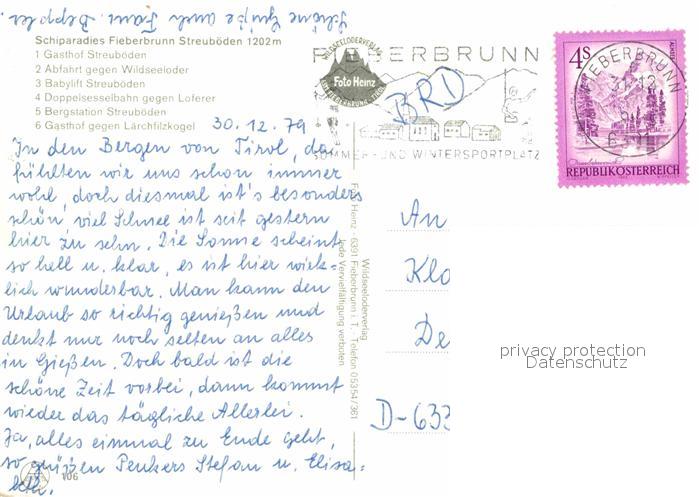 Schöne Grüße auch Frau Deppler.
Schiparadies Fieberbrunn Streuböden 1202m
1 Gasthof Streuböden
2 Abfahrt gegen Wildseeloder
3 Babylift Streuböden
4 Doppelsesselbahn gegen Loferer
5 Bergstation Streuböden
6 Gasthof gegen Lärchfilzkogel
30.12.79
In den Bergen von Tirol, da
fühlten wir uns schon immer
wohl, doch diesmal ist's besonders
schön, viel Schnee ist seit gestern
hier zu sehn. Die Sonne scheint
so hell u. klar, es ist hier wirk-
lich wunderbar. Man kann den
Urlaub so richtig genießen und
denkt nur noch selten an alles
in Gießen. Doch bald ist die
schöne Zeit vorbei, dann kommt
wieder das tägliche Allerlei.
Ja, alles einmal zu Ende geht,
so grüßen Penkers Stefan u. Elisa-
beth.
106
WILDSEELODERVERLAG
Foto Heinz
FIEBERBRUNN
SOMMER- UND WINTERSPORTPLATZ
BRD
4S
REPUBLIK ÖSTERREICH
FIEBERBRUNN
Wildseeloderverlag
Foto Heinz - 6391 Fieberbrunn i. T. - Telefon 05354/361
Jede Vervielfältigung verboten
An
Klo
De
D-633
privacy protection
Datenschutz